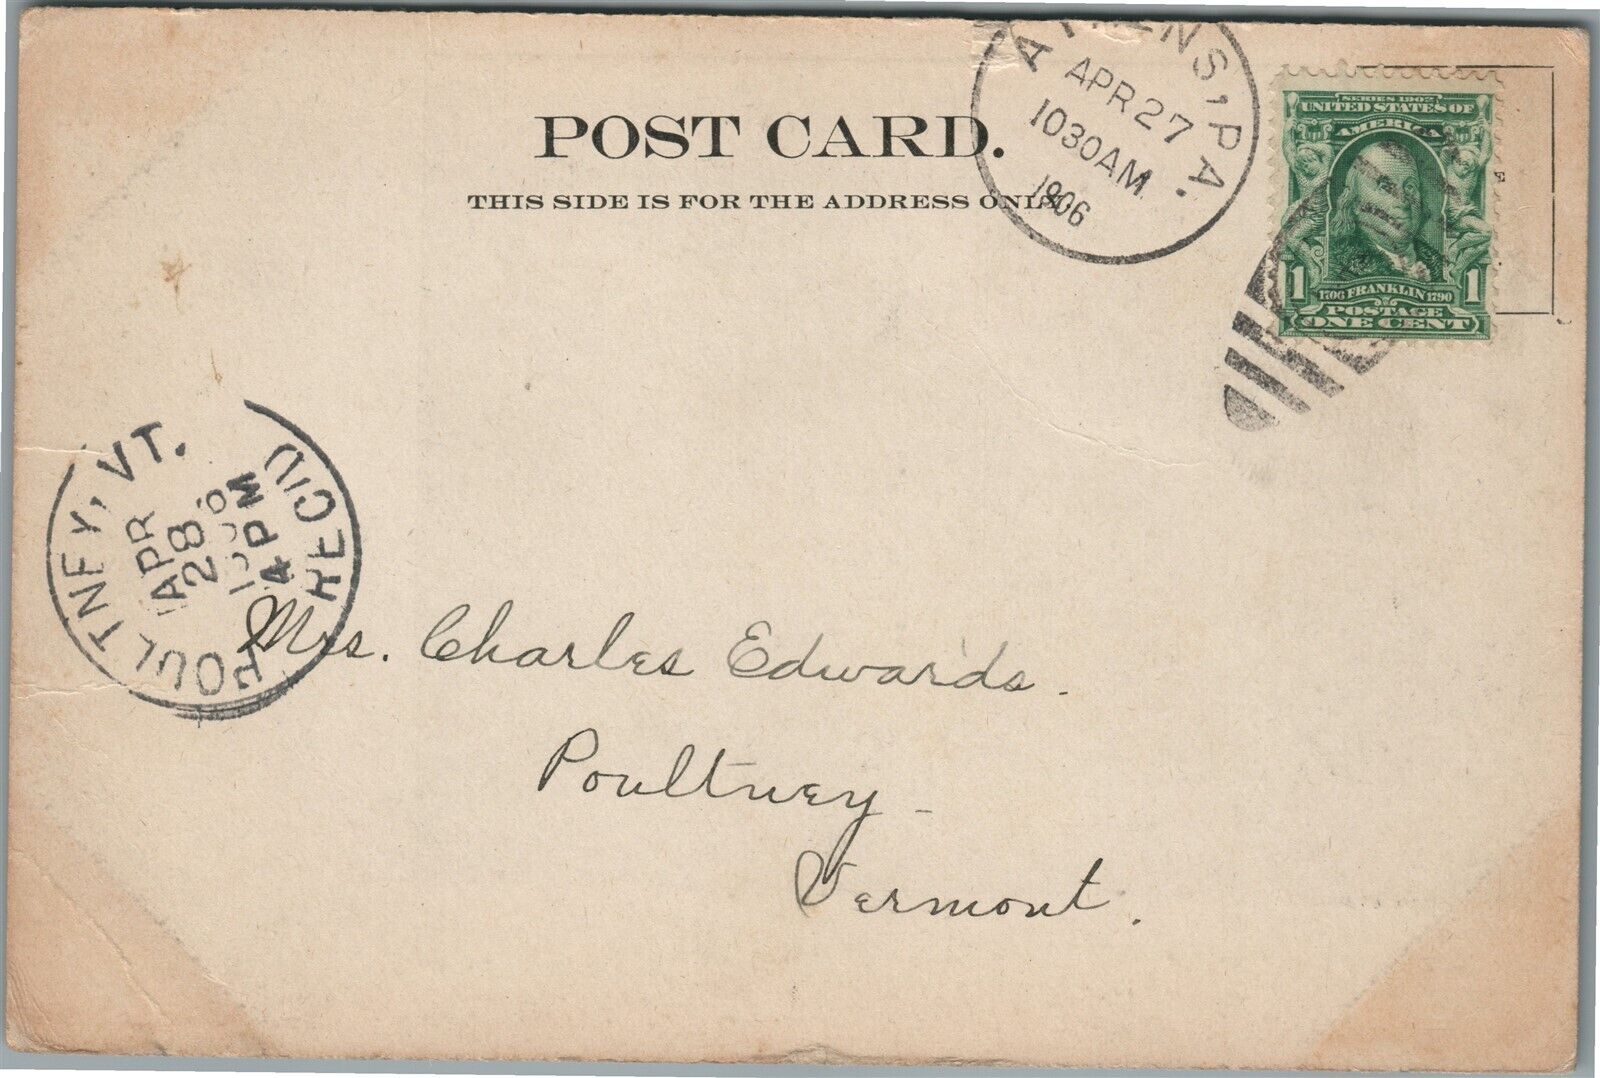 POST CARD.
THIS SIDE IS FOR THE ADDRESS ONLY.
ATHENS, PA.
APR 27
1030AM
1906
SERIES 1902
UNITED STATES OF
AMERICA
1 1
1706 FRANKLIN 1790
POSTAGE
ONE CENT
POULTNEY, VT.
APR
28
1906
4PM
REC'D
Mrs. Charles Edwards.
Poultney -
Vermont.